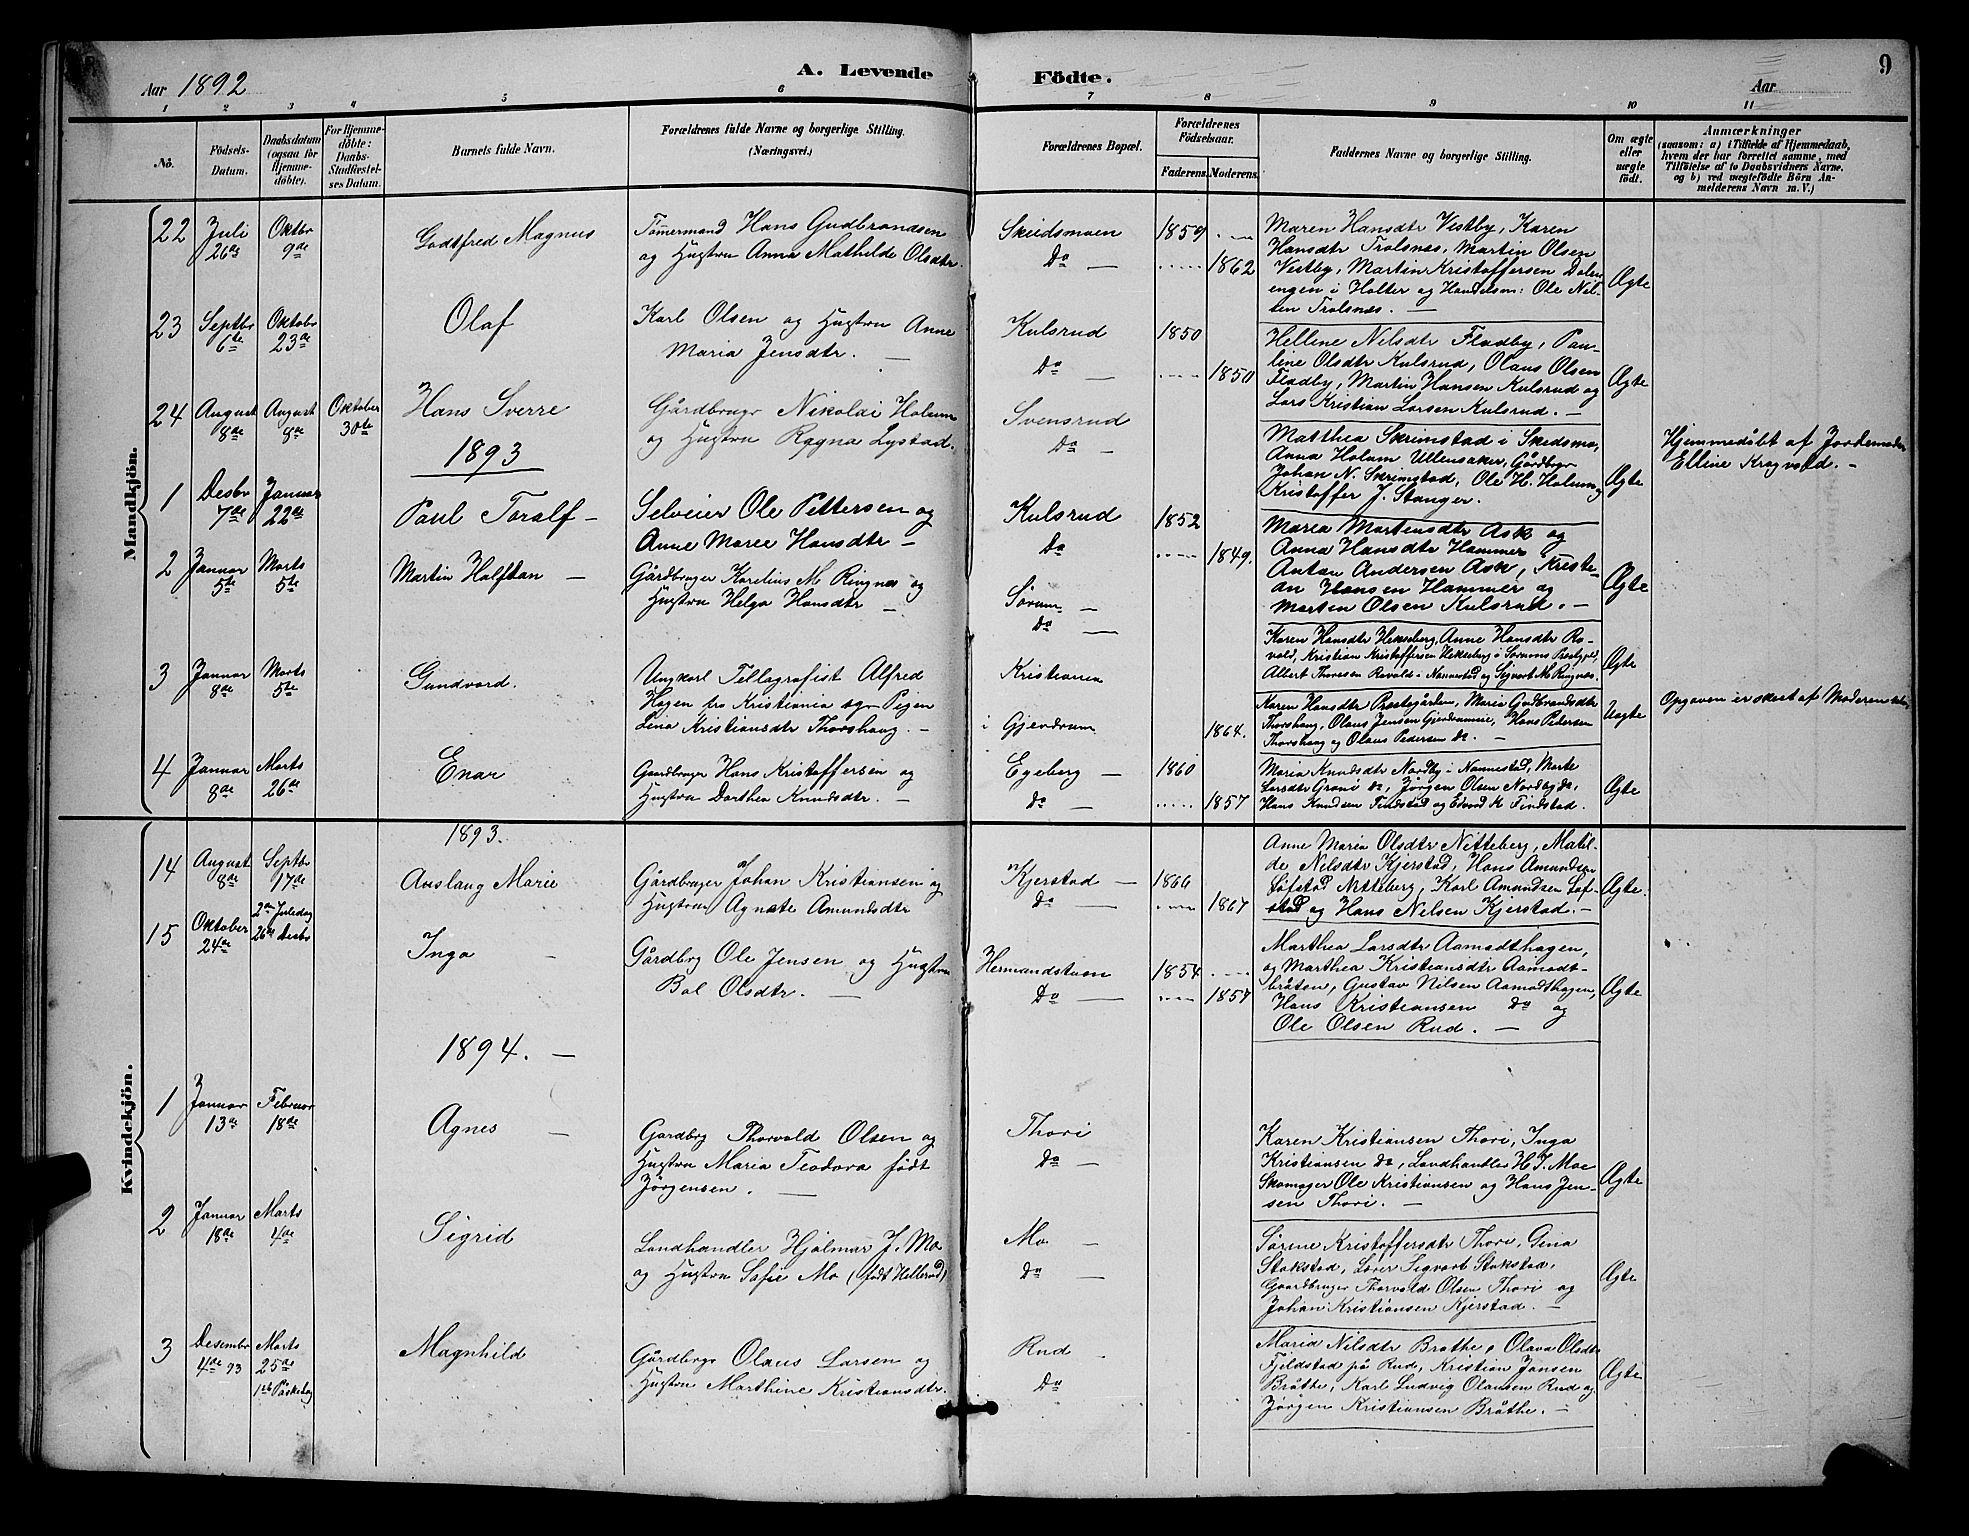 Aar 1892
A. Levende Födte.
Aar
9
1 2 3 4 5 6 7 8 9 10 11
Nô.
Födsels-Datum.
Daabsdatum (ogsaa för Hjemme-döbte).
For Hjemme-döbte: Daabs-Stadfæstel-ses Datum.
Barnets fulde Navn.
Forældrenes fulde Navne og borgerlige Stilling. (Næringsvei.)
Forældrenes Bopæl.
Forældrenes Födselsaar.
Faderens. Moderens.
Faddernes Navne og borgerlige Stilling.
Om ægte eller uægte födt.
Anmærkninger
(saasom: a) i Tilfælde af Hjemmedaab, hvem der har forrettet samme, med Tilföielse af to Daabsvidners Navne, og b) ved uægtefödte Börn An-melderens Navn m. V.)
Mandkjön.
22 Juli 26de Oktbr 9de Godtfred Magnus
Tömermand Hans Gudbrandsen
og Hustru Anna Mathilde Olsdtr.
Skedsmoen 1859
Do 1862
Maren Hansdtr Vestby, Karen
Hansdtr Trolsnæs, Martin Olsen
Vestby, Martin Kristoffersen Dalen
engen i Holter og Handelsm: Ole Nil-
sen Trolsnæs.
Ægte
23 Septbr 6te Oktobr 23de Olaf
Karl Olsen og Hustru Anne
Maria Jensdtr.
Kulsrud 1850
Do 1850
Hellene Nilsdtr Fladby, Pau-
line Olsdtr Kulsrud, Olaus Olsen
Fladby, Martin Hansen Kulsrud og
Lars Kristian Larsen Kulsrud.
Ægte
24 August 8de August 8de Oktober 30te Hans Sverre
Gårdbrugr Nikolai Holum
og Hustru Ragna Lystad.
Svensrud
Do
Matthea Skrimstad i Skedsmo,
Anna Holum Ullensaker, Gårdbgr
Johan N. Skrimstad, Ole H. Holum og
Kristoffer J. Stanger.
Ægte
Hjemmedöbt af Jordemoder
Elline Kragvold.
1893
1 Desbr 7de Januar 22de Paul Toralf
Selveier Ole Pettersen og
Anne Marie Hansdtr
Kulsrud 1852
Do 1849.
Maria Martensdtr Ask og
Anna Hansdtr Hammer
Anton Andersen Ask, Kriste-
an Hansen Hammer og
Martin Olsen Kulsrud.
Ægte
2 Januar 5te Marts 5te Martin Halftan
Gårdbruger Karelius M Ringnæs og
Hustru Helga Hansdtr
Sörum
Do
Karen Hansdtr Hekseberg, Anne Hansdtr Ro-
vold, Kristian Kristoffersen Hekseberg i Sörums Prestgjeld,
Albert Thoresen Rovold i Nannestad og Sigvart M Ringnæs.
Ægte
3 Januar 8de Marts 5te Gundvord.
Ungkarl Tellegrafist Alfred
Hagen fra Kristiania og Pigen
Lina Kristiansdtr Thorshaug.
Kristiania
i Gjerdrum 1864.
Karen Hansdtr Prestegården, Maria Gudbrandsdtr
Thorshaug, Olaus Jensen Gjerdrummie, Hans Pedersen
Thorshaug og Olaus Pedersen do.
Uægte
Opgaven er skeet af Moderen
4 Januar 8de Marts 26de Enar
Gaardbruger Hans Kristoffersen og
Hustru Dorthea Knudsdtr.
Egeberg 1860
Do 1857
Maria Knudsdtr Nordby i Nannestad, Marte
Larsdtr Grani do, Jörgen Olsen Nordby do,
Hans Knudsen Findstad og Edvard K Findstad.
Ægte
Kvindekjön.
1893.
14 August 8de Septbr 17de Auslaug Marie
Gårdbruger Johan Kristiansen og
Hustru Agnete Amundsdtr
Kjerstad 1866
Do 1867
Anne Maria Olsdtr Nitteberg, Matil-
de Nilsdtr Kjerstad, Hans Amundsen
Löfstad Nitteberg, Karl Amundsen Löf-
stad og Hans Nelsen Kjerstad.
Ægte.
15 Oktober 24de 2den Juledag 26de Desbr Inga
Gårdbrg Ole Jensen og Hustru
Bol Olsdtr.
Hermandstuen 1854
Do 1857
Marthea Larsdtr Aamodthagen,
og Marthea Kristiansdtr Aamodt-
bråten, Gustav Nilsen Aamodthagen,
Hans Kristiansen do og
Ole Olsen Rud.
Ægte
1894.
1 Januar 13de Februar 18de Agnes
Gårdbrg Thorvald Olsen og
Hustru Maria Teodora födt
Jörgensen.
Thori
Do
Karen Kristiansen Thori, Inga
Kristiansen do, Landhandler H J. Moe
Skomager Ole Kristiansen og Hans Jen-
sen Thori.
Ægte
2 Januar 18de Marts 4de Sigrid
Landhandler Hjalmar J. Mo
og Hustru Safie Mo (födt Hellerud)
Mo
Do
Sörine Kristoffersdtr Thori, Gina
Stokstad, Lærer Sigvart Stokstad,
Gaardbruger Thorvald Olsen Thori og
Johan Kristiansen Kjerstad.
Ægte
3 Desembr 4de 93 Marts 25de 1ste Påskedag Magnhild
Gårdbergr Olaus Larsen og
Hustru Marthine Kristiansdtr.
Rud
Do
Maria Nilsdtr Bråthe, Olava Olsdtr
Fjeldstad på Rud, Kristian Jansen
Bråthe, Karl Ludvig Olausen Rud og
Jörgen Kristiansen Bråthe.
Ægte